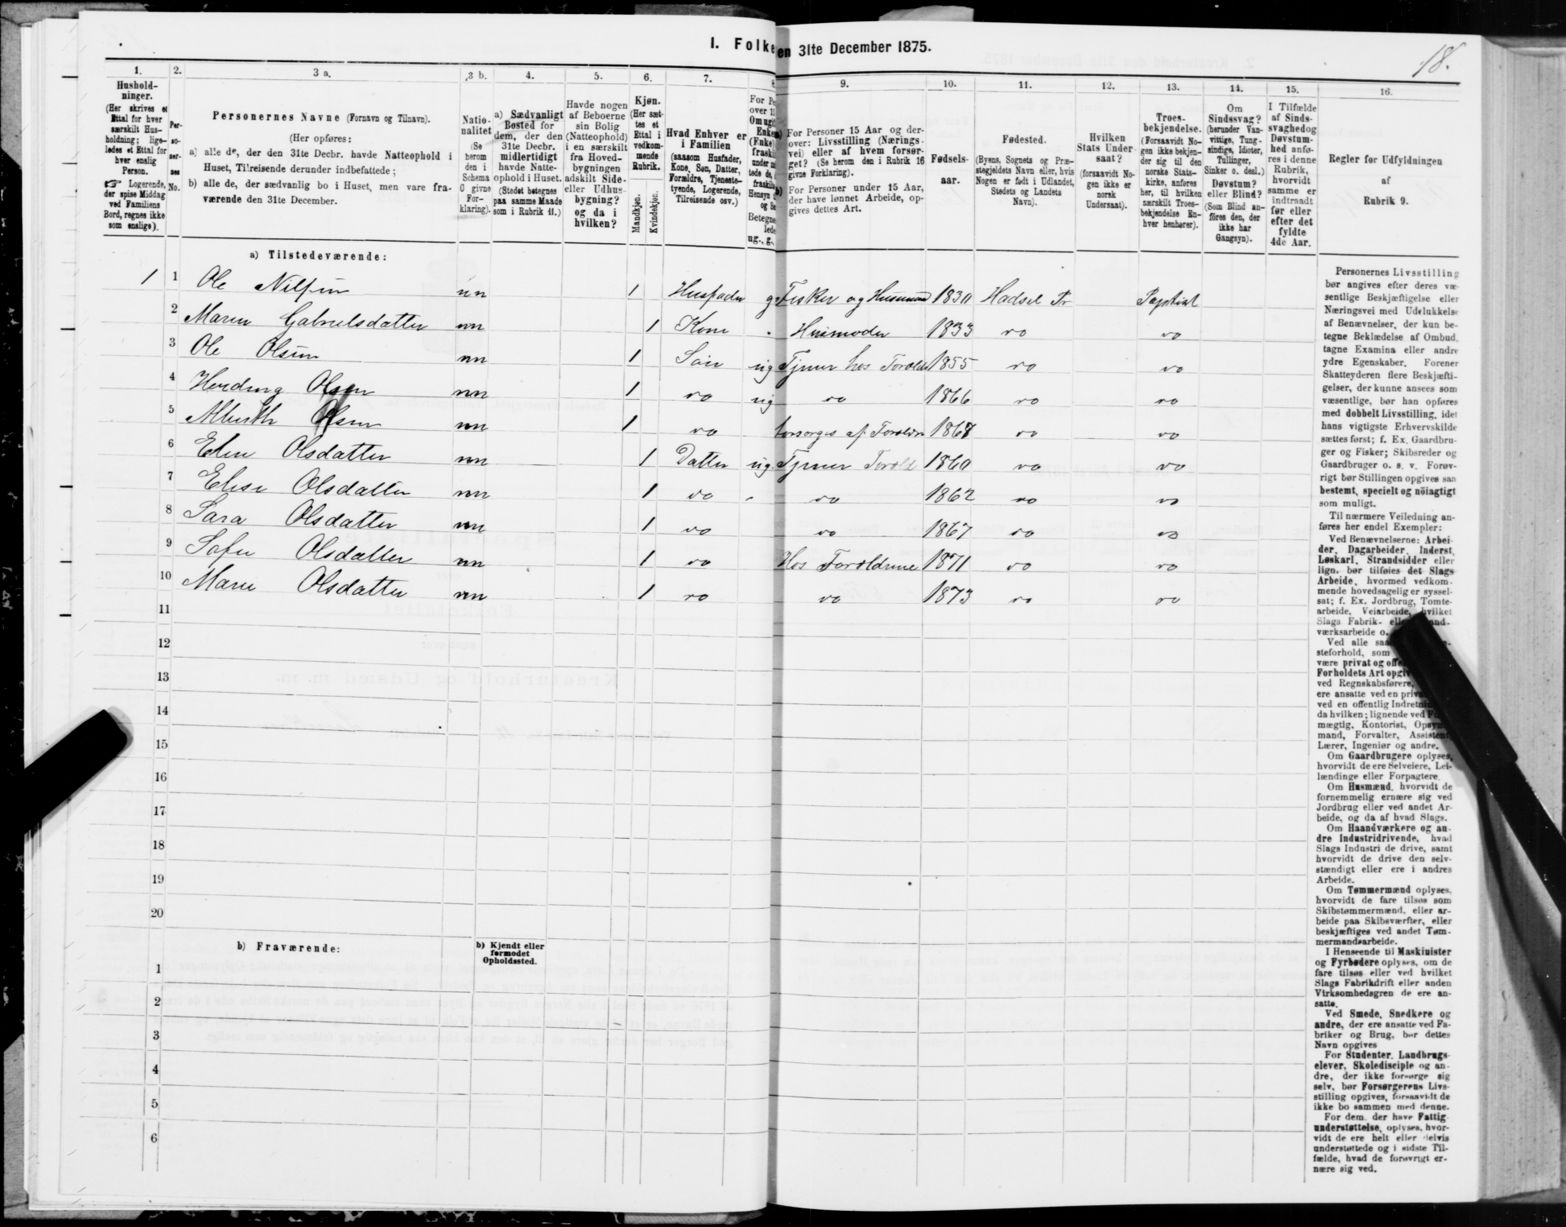 18.
I. Folke
en 31te December 1875.
1.
2.
3 a.
3 b.
4.
5.
6.
7.
9.
10.
11.
12.
13.
14.
15.
16.
Hushold-
ninger.
(Her skrives et
Ettal for hver
særskilt Hus-
holdning; lige-
ledes et Ettal for
hver enslig
Person.
☞ Logerende,
der spise Middag
ved Familiens
Bord, regnes ikke
som enslige).
Per-
so-
ner-
nes
No.
Personernes Navne (Fornavn og Tilnavn).
(Her opføres:
a) alle de, der den 31te Decbr. havde Natteophold i
Huset, Tilreisende derunder indbefattede;
b) alle de, der sædvanlig bo i Huset, men vare fra-
værende den 31te December.
Natio-
nalitet
(Se
herom
den i
Schema
givne
For-
klaring).
a) Sædvanligt
Bosted for
dem, der den
31te Decbr.
midlertidigt
havde Natte-
ophold i Huset.
(Stedet betegnes
paa samme Maade
som i Rubrik 11.)
Havde nogen
af Beboerne
sin Bolig
(Natteophold)
i en særskilt
fra Hoved-
bygningen
adskilt Side-
eller Udhus-
bygning?
og da i
hvilken?
Kjøn.
(Her sæt-
tes et
Ettal i
vedkom-
mende
Rubrik.
Mandkjøn.
Kvindekjøn.
Hvad Enhver er
i Familien
(saasom Husfader,
Kone, Søn, Datter,
Forældre, Tjeneste-
tyende, Logerende,
Tilreisende osv.)
For Personer 15 Aar og der-
over: Livsstilling (Nærings-
vei) eller af hvem forsør-
get? (Se herom den i Rubrik 16
givne Forklaring).
For Personer under 15 Aar,
der have lønnet Arbeide, op-
gives dettes Art.
Fødsels-
aar.
Fødested.
(Byens, Sognets og Præ-
stegjeldets Navn eller, hvis
Nogen er født i Udlandet,
Stedets og Landets
Navn).
Hvilken
Stats Under-
saat?
(forsaavidt No-
gen ikke er
norsk
Undersaat).
Troes-
bekjendelse.
(Forsaavidt No-
gen ikke bekjen-
der sig til den
norske Stats-
kirke, anføres
her, til hvilken
særskilt Troes-
bekjendelse En-
hver henhører).
Om
Sindssvag?
(herunder Van-
vittige, Tung-
sindige, Idioter,
Tullinger,
Sinker o. desl.)
Døvstum?
eller Blind?
(Som Blind an-
føres den, der
ikke har
Gangsyn).
I Tilfælde
af Sinds-
svaghed og
Døvstum-
hed anfø-
res i denne
Rubrik,
hvorvidt
samme er
indtraadt
før eller
efter det
fyldte
4de Aar.
Regler for Udfyldningen
af
Rubrik 9.
a) Tilstedeværende:
1 1 Ole Nilsen nn 1 Husfader g Fisker og Husmand 1830 Hadsel Pr Baptist
2 Maren Gabrielsdatter nn 1 Kone Husmoder 1833 do do
3 Ole Olsen nn 1 Søn ug Tjener hos Foræld 1855 do do
4 Olsen nn 1 do ug do 1866 do do
5 Olsen nn 1 do forsørges af Foræld 1868 do do
6 Elen Olsdatter nn 1 Datter ug Tjener Foræld 1860 do do
7 Elise Olsdatter nn 1 do do 1862 do do
8 Sara Olsdatter nn 1 do do 1867 do do
9 Sofie Olsdatter nn 1 do Hos Forældrene 1871 do do
10 Marie Olsdatter nn 1 do do 1873 do do
11
12
13
14
15
16
17
18
19
20
b) Fraværende:
b) Kjendt eller
formodet
Opholdssted.
1
2
3
4
5
6
Personernes Livsstilling
bør angives efter deres væ-
sentlige Beskjæftigelse eller
Næringsvei med Udelukkelse
af Benævnelser, der kun be-
tegne Beklædelse af Ombud,
tagne Examina eller andre
ydre Egenskaber. Forener
Skatteyderen flere Beskjæfti-
gelser, der kunne ansees som
væsentlige, bør han opføres
med dobbelt Livsstilling, idet
hans vigtigste Erhvervskilde
sættes først; f. Ex. Gaardbru-
ger og Fisker; Skibsreder og
Gaardbruger o. s. v. Forøv-
rigt bør Stillingen opgives saa
bestemt, specielt og nöiagtigt
som muligt.
Til nærmere Veiledning an-
føres her endel Exempler:
Ved Benævnelserne: Arbei-
der, Dagarbeider, Inderst,
Løskarl, Strandsidder eller
lign. bør tilføies det Slags
Arbeide, hvormed vedkom-
mende hovedsagelig er syssel-
sat; f. Ex. Jordbrug, Tomte-
arbeide, Veiarbeide, hvilket
Slags Fabrik-
værksarbeide o.
Ved alle
steforhold, som
være privat og
Forholdets Art
ved Regnskabsførere,
ere ansatte ved en
ved en offentlig
da hvilken; lignende ved
mægtig, Kontorist,
mand, Forvalter, Assistent,
Lærer, Ingeniør og andre.
Om Gaardbrugere oplyses,
hvorvidt de ere Selveiere, Lei-
lændinge eller Forpagtere.
Om Husmænd, hvorvidt de
fornemmelig ernære sig ved
Jordbrug eller ved andet Ar-
beide, og da af hvad Slags.
Om Haandværkere og an-
dre Industridrivende, hvad
Slags Industri de drive, samt
hvorvidt de drive den selv-
stændigt eller ere i andres
Arbeide.
Om Tømmermænd oplyses,
hvorvidt de fare tilsøs som
Skibstømmermænd, eller ar-
beide paa Skibsværfter, eller
beskjæftiges ved andet Tøm-
mermandsarbeide.
I Henseende til Maskinister
og Fyrbødere oplyses, om de
fare tilsøs eller ved hvilket
Slags Fabrikdrift eller anden
Virksomhedsgren de ere an-
satte.
Ved Smede, Snedkere og
andre, der ere ansatte ved Fa-
briker og Brug, bør dettes
Navn opgives
For Studenter, Landbrugs-
elever, Skoledisciple og an-
dre, der ikke forsørge sig
selv, bør Forsørgerens Livs-
stilling opgives, forsaavidt de
ikke bo sammen med denne.
For dem, der have Fattig-
understøttelse, oplyses, hvor-
vidt de ere helt eller delvis
understøttede og i sidste Til-
fælde, hvad de forøvrigt er-
nære sig ved.